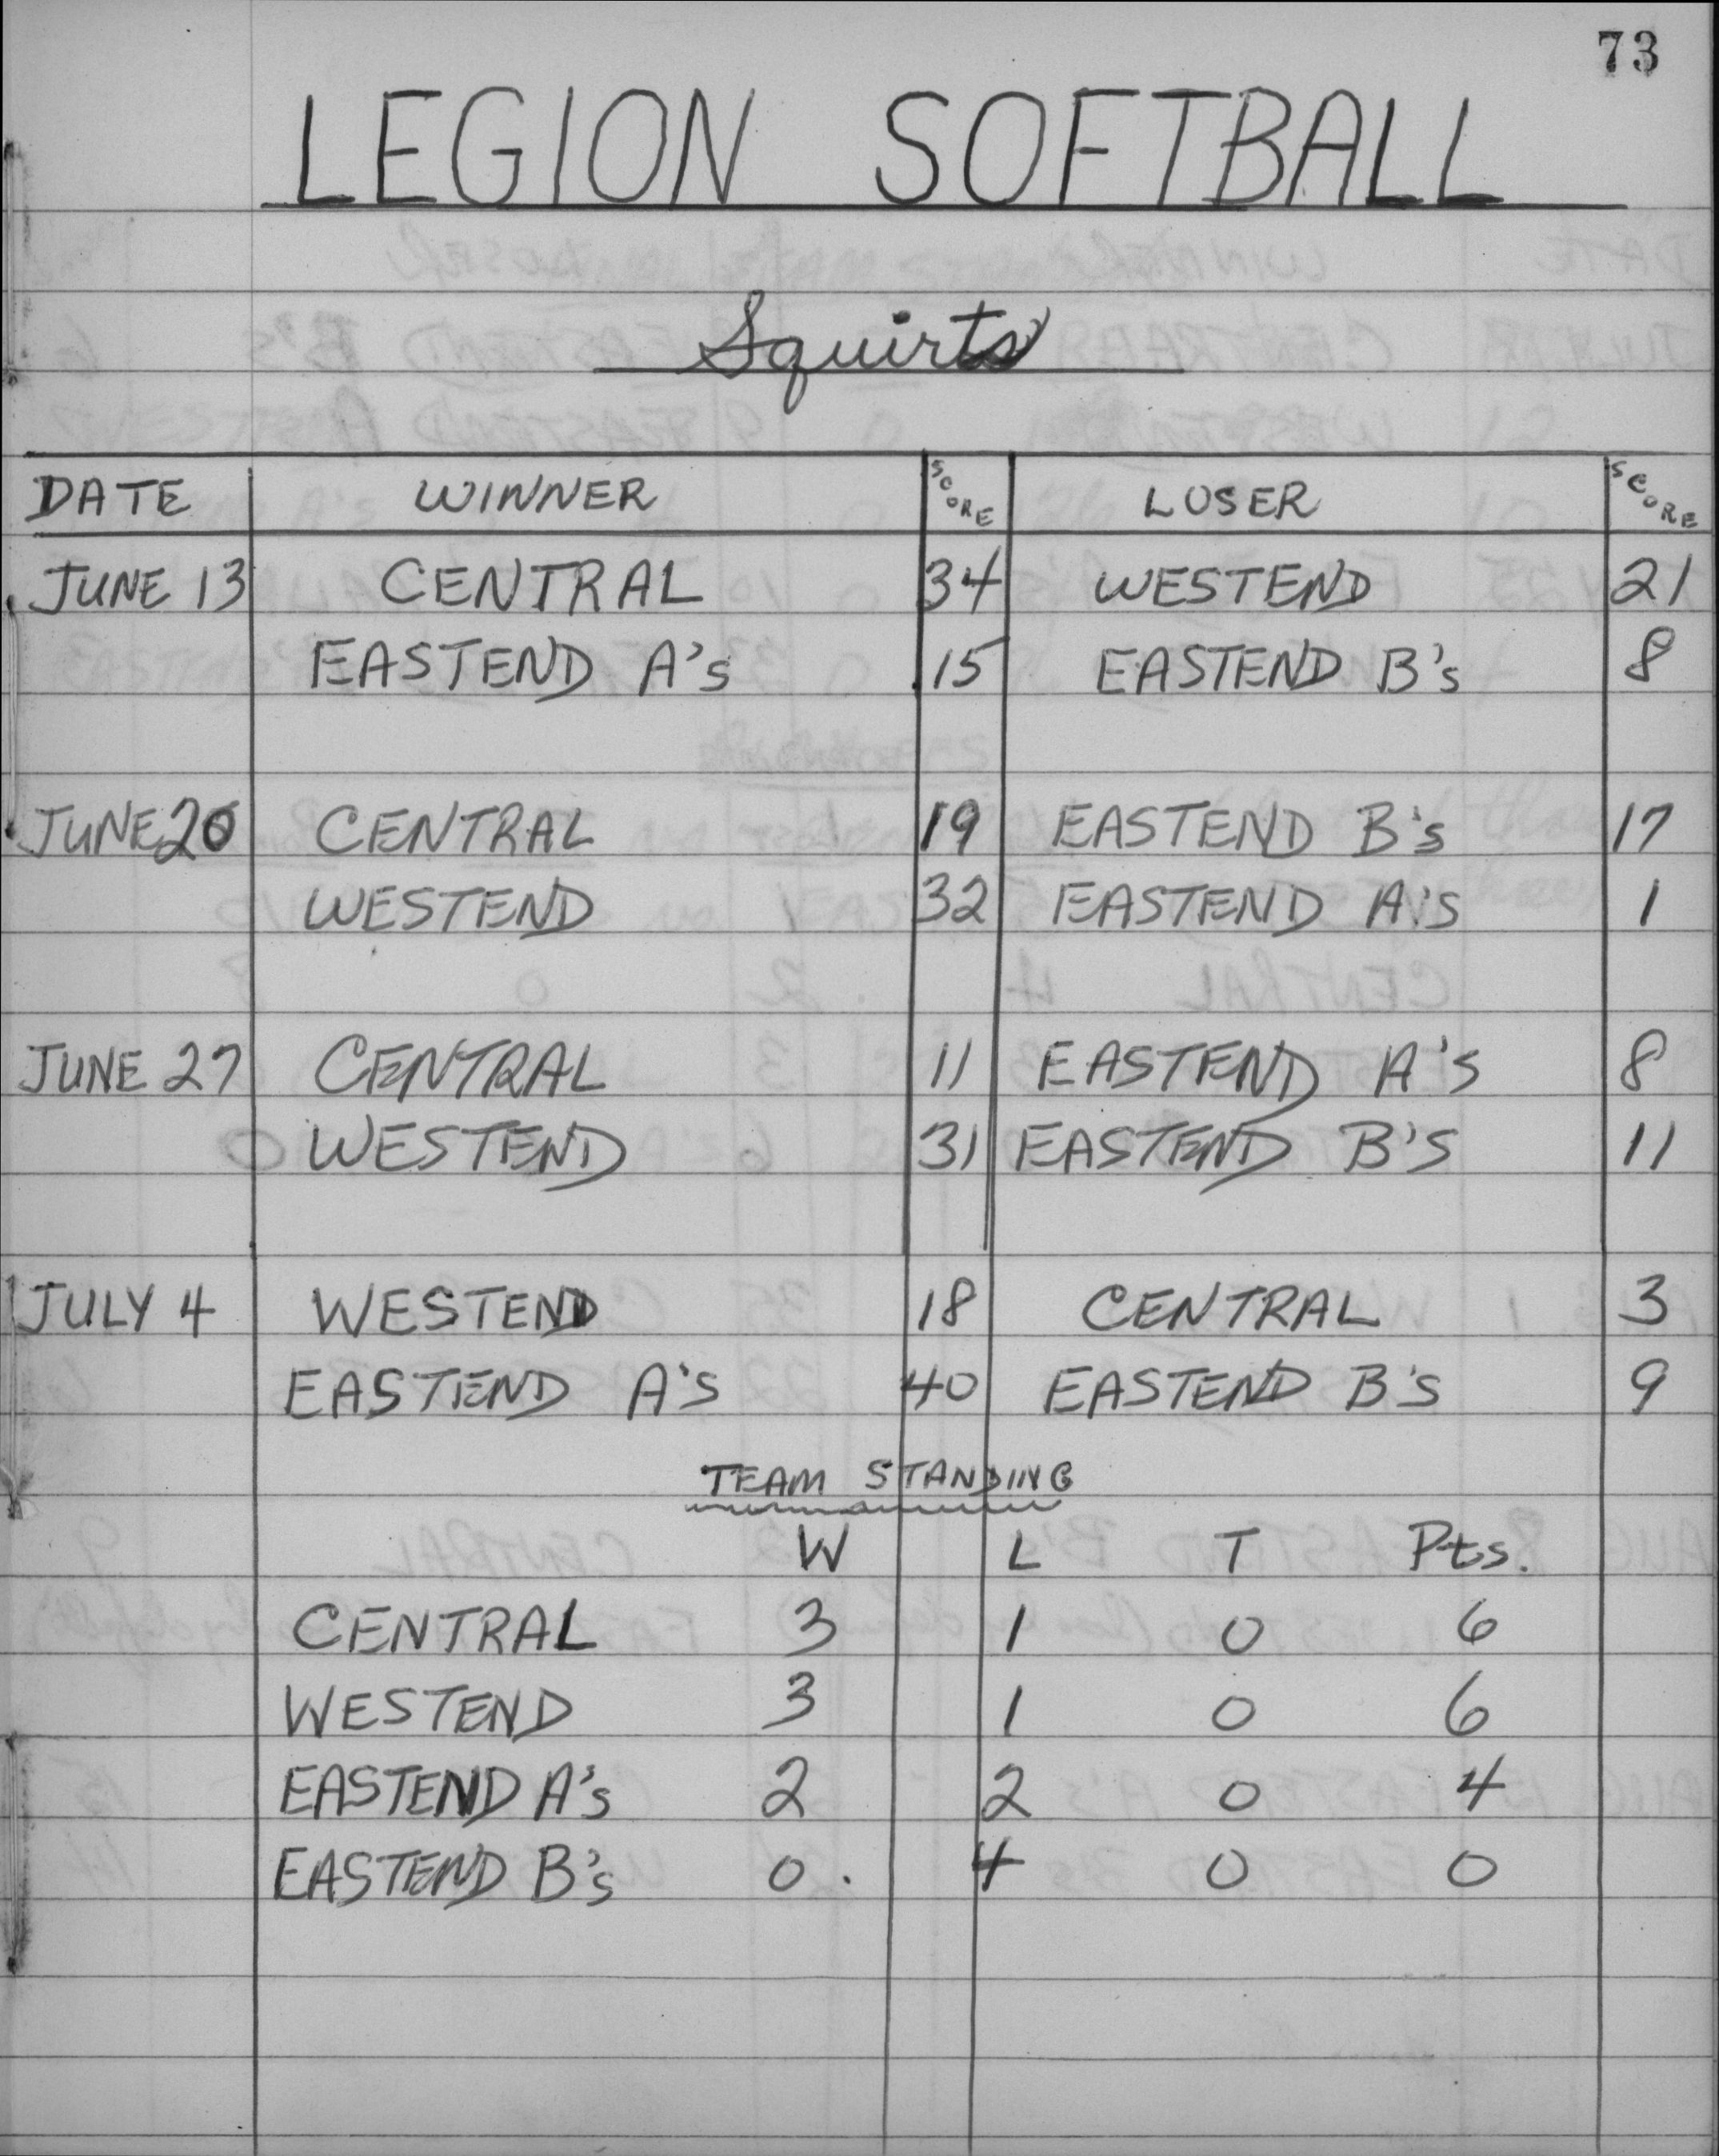 73
LEGION SOFTBALL
Squirts
DATE WINNER SCORE LOSER SCORE
JUNE 13 CENTRAL 34 WESTEND 21
EASTEND A's 15 EASTEND B's 8
JUNE 20 CENTRAL 19 EASTEND B's 17
WESTEND 32 EASTEND A's 1
JUNE 27 CENTRAL 11 EASTEND A's 8
WESTEND 31 EASTEND B's 11
JULY 4 WESTEND 18 CENTRAL 3
EASTEND A's 40 EASTEND B's 9
TEAM STANDING
W L T Pts.
CENTRAL 3 1 0 6
WESTEND 3 1 0 6
EASTEND A's 2 2 0 4
EASTEND B's 0. 4 0 0